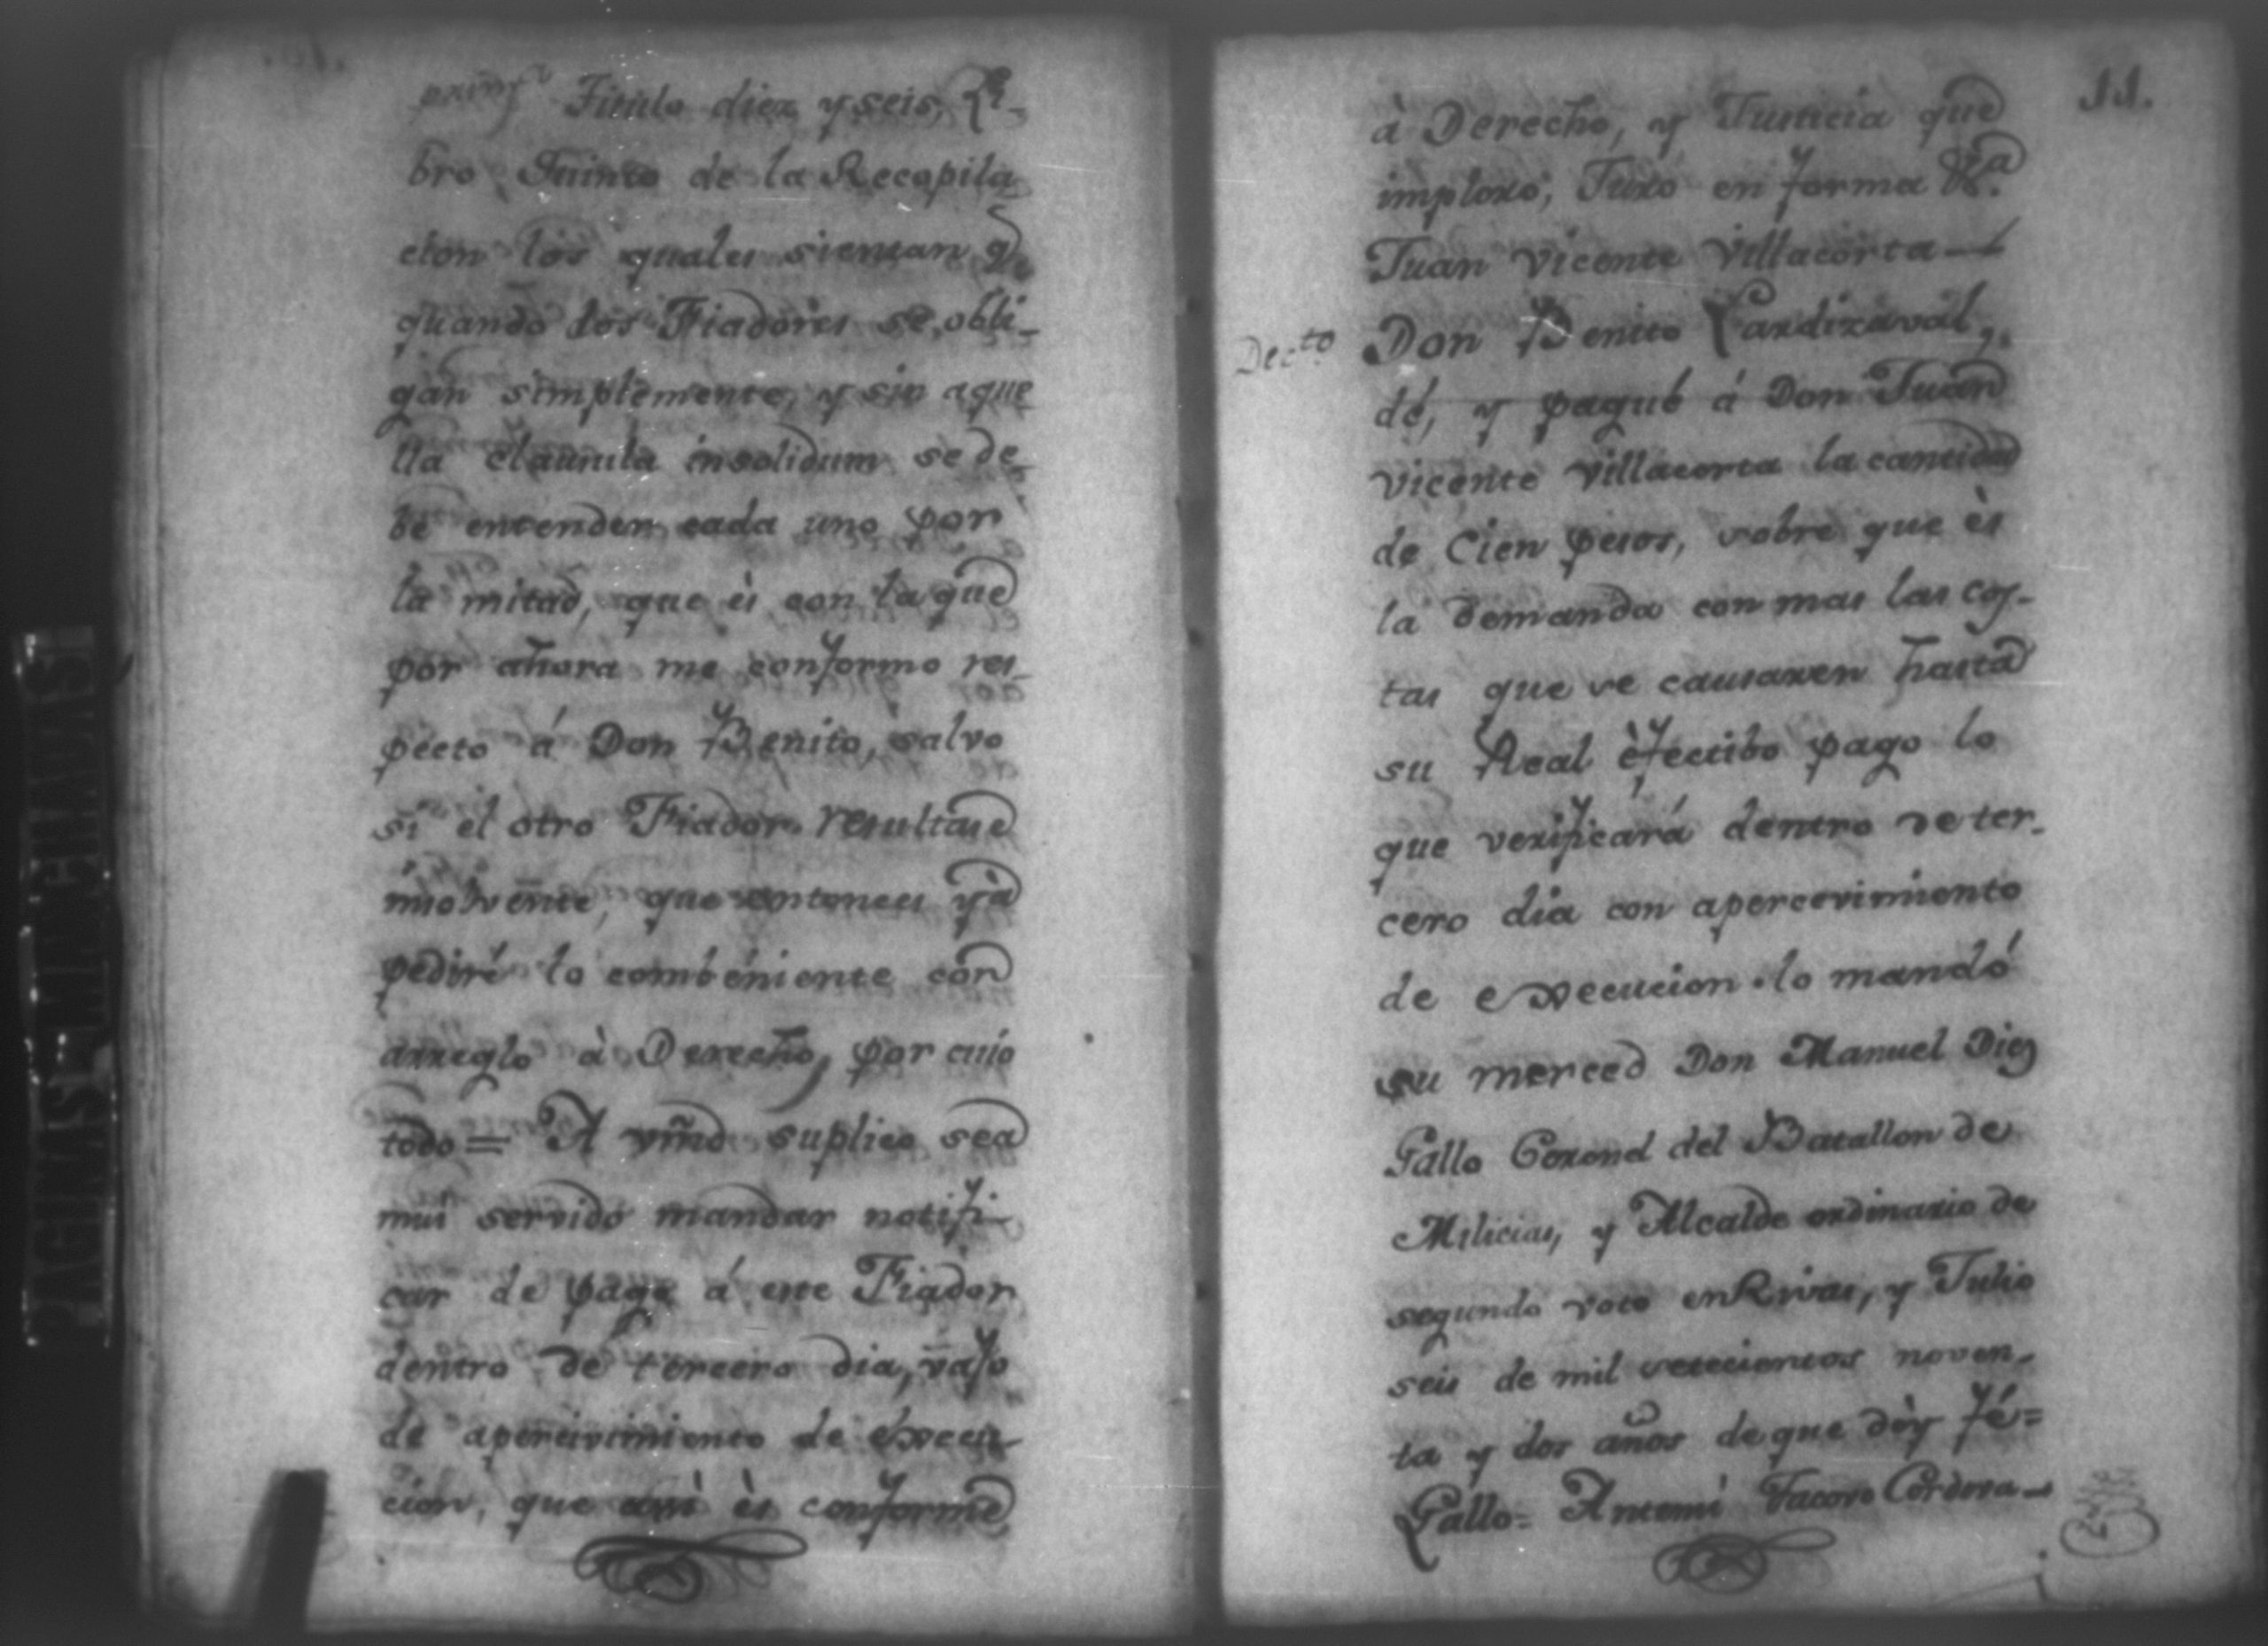 Titulo diez y seis, Li-
bro Quinto de la Recopila-
cion los quales sientan q.e
quando dos Fiadores se obli-
gan simplemente, y sin aque
lla clausula insolidum se de-
be entender cada uno por
la mitad, que ès con la que
por ahora me conformo res-
pecto á Don Benito, salvo
si el otro Fiador resultase
insolvente, que entonces yà
pediré lo combeniente con
arreglo à Derecho, por cuio
todo = A vm̃d suplico sea
mui servido mandar notifi-
car de pago á este Fiador
dentro de tercero dia, vajo
de apercivimiento de execu-
cion, que asi ès conforme
11.
à Derecho, y Justicia que
imploro, Juro en forma &.a
Juan Vicente Villacorta
Decto. Don Benito Lardizaval,
dé, y pague á Don Juan
Vicente Villacorta la cantidad
de Cien pesos, sobre que ès
la demanda con mas las cos-
tas que se causaren hasta
su Real èfectibo pago lo
que verificará dentro de ter-
cero dia con apercevimiento
de execucion. lo mandó
su merced Don Manuel Diez
Gallo Coronel del Batallon de
Milicias, y Alcalde ordinario de
segundo voto en Rivas, y Julio
seis de mil setecientos noven-
ta y dos años de que dòy fé=
Gallo= Antemi Cordova
PAGINAS MANCHADAS